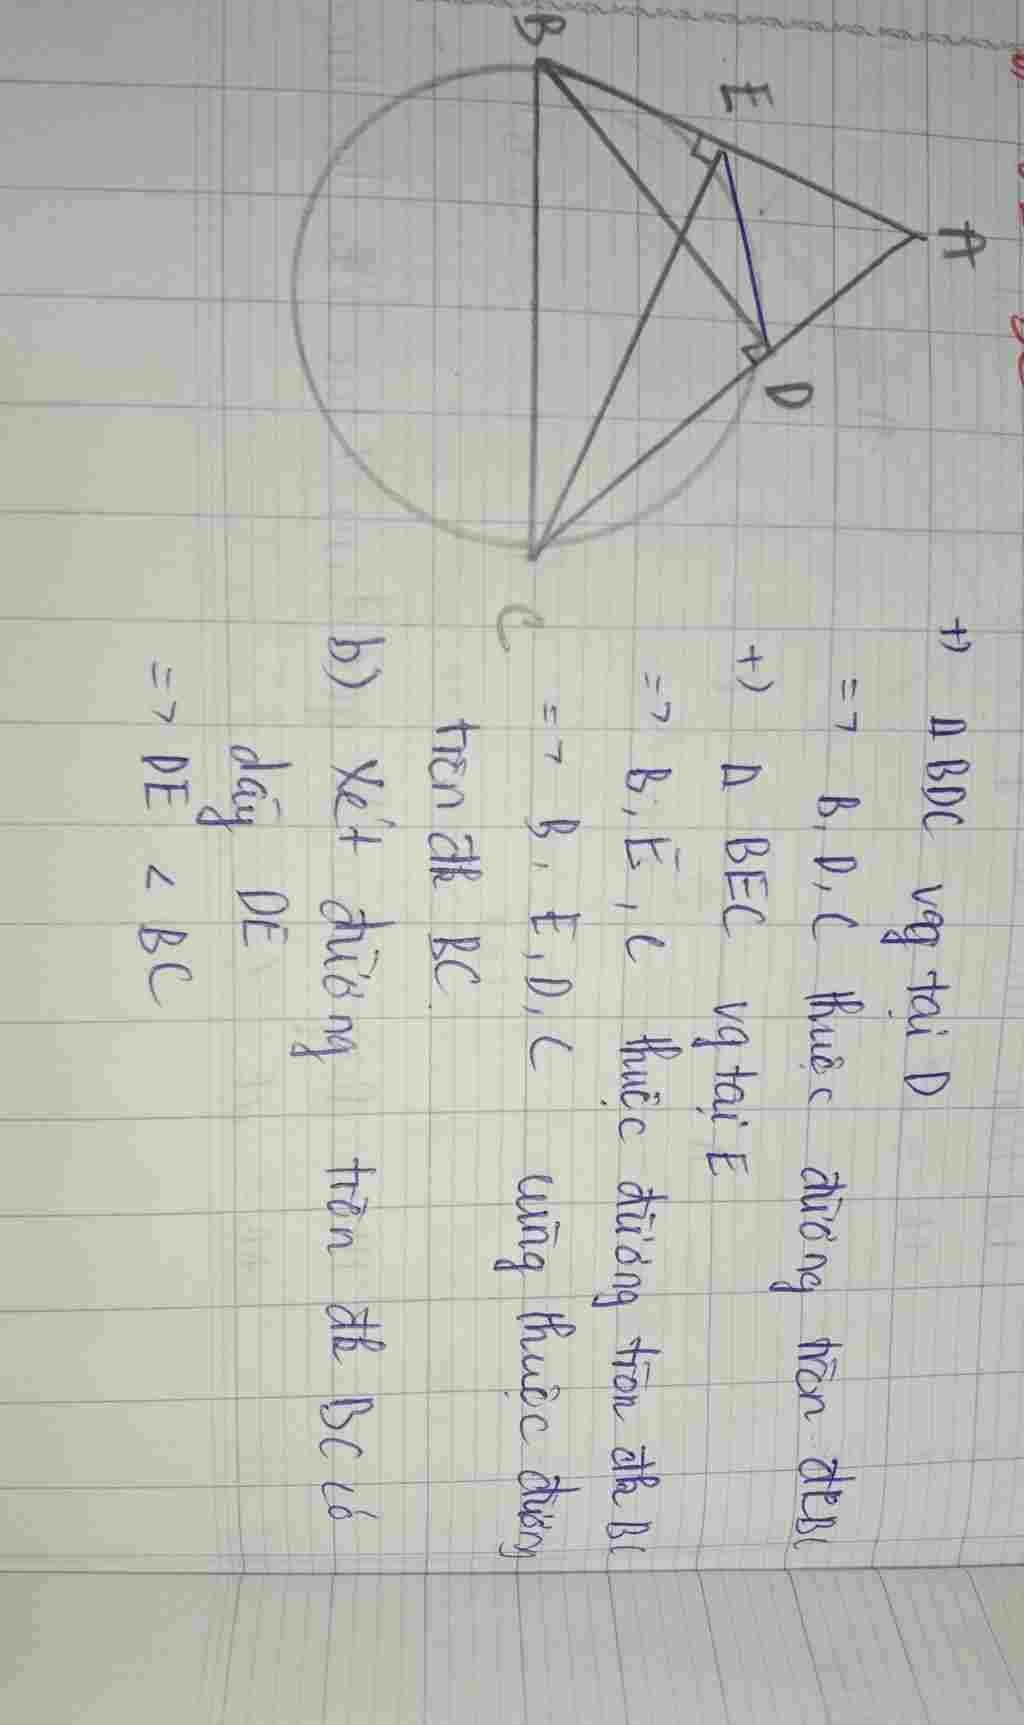 A
E
B
D
C
+) Δ BDC vg tại D
=> B, D, C thuộc đường tròn đk BC
+) Δ BEC vg tại E
=> B, E, C thuộc đường tròn đk BC
=> B, E, D, C cùng thuộc đường
tròn đk BC
b) Xét đường tròn đk BC có
dây DE
=> DE < BC